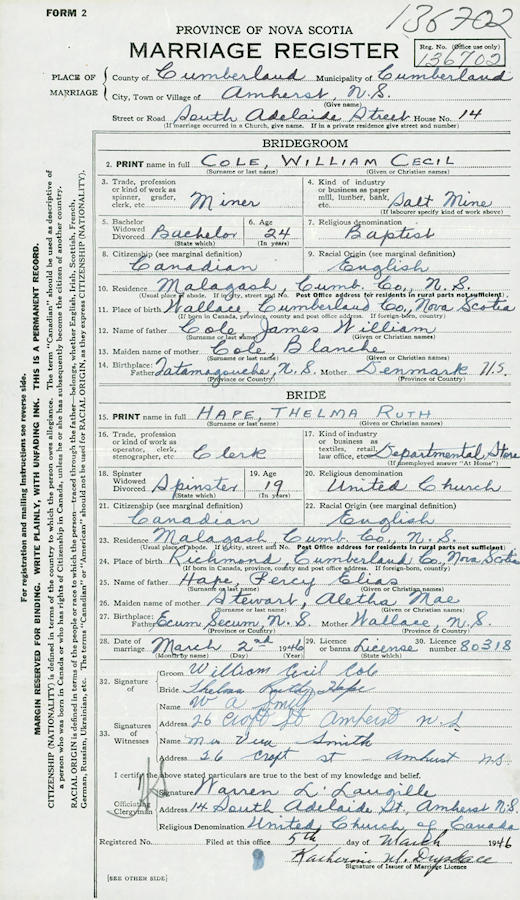 FORM 2
136702
PROVINCE OF NOVA SCOTIA
MARRIAGE REGISTER
Reg. No. (Office use only)
136702
PLACE OF MARRIAGE
County of Cumberland Municipality of Cumberland
City, Town or Village of Amherst, N.S.
(Give name)
Street or Road South Adelaide Street House No. 14
(If marriage occurred in a Church, give name. If in a private residence give street and number)
BRIDEGROOM
2. PRINT name in full COLE, WILLIAM CECIL
(Surname or last name) (Given or Christian names)
3. Trade, profession or kind of work as spinner, grader, clerk, etc Miner
4. Kind of industry or business as paper mill, lumber, bank, etc. Salt Mine
(If labourer specify kind of work above)
5. Bachelor Widowed Divorced Bachelor
(State which)
6. Age 24
(In years)
7. Religious denomination Baptist
8. Citizenship (see marginal definition) Canadian
9. Racial Origin (see marginal definition) English
10. Residence Malagash, Cumb. Co., N.S.
(Usual place of abode. If in city, street and No. Post Office address for residents in rural parts not sufficient)
11. Place of birth Wallace, Cumberland Co., Nova Scotia
(If born in Canada, province, county and post office address. If foreign-born, country)
12. Name of father Cole James William
(Surname or last name) (Given or Christian names)
13. Maiden name of mother Cole Blanche
(Surname or last name) (Given or Christian names)
14. Birthplace: Father Tatamagouche, N.S. Mother Denmark N.S.
(Province or Country) (Province or Country)
BRIDE
15. PRINT name in full HAPE, THELMA RUTH
(Surname or last name) (Given or Christian names)
16. Trade, profession or kind of work as operator, clerk, stenographer, etc Clerk
17. Kind of industry or business as textiles, retail, law office, etc. Departmental Store
(If unemployed answer "At Home")
18. Spinster Widowed Divorced Spinster
(State which)
19. Age 19
(In years)
20. Religious denomination United Church
21. Citizenship (see marginal definition) Canadian
22. Racial Origin (see marginal definition) English
23. Residence Malagash Cumb. Co., N.S.
(Usual place of abode. If in city, street and No. Post Office address for residents in rural parts not sufficient)
24. Place of birth Richmond, Cumberland Co., Nova Scotia
(If born in Canada, province, county and post office address. If foreign-born, country)
25. Name of father Hape, Percy Elias
(Surname or last name) (Given or Christian names)
26. Maiden name of mother Stewart, Aletha Mae
(Surname or last name) (Given or Christian names)
27. Birthplace: Father Ecum Secum, N.S. Mother Wallace, N.S.
(Province or Country) (Province or Country)
28. Date of marriage March 2nd 1946
(Month by name) (Day) (Year)
29. Licence or banns License
(State which)
30. Licence number 80318
32. Signature of
Groom William Cecil Cole
Bride Thelma Ruth Hape
33. Signature of Witnesses
Name W A Smith
Address 26 Croft St Amherst N.S.
Name Mrs Vera Smith
Address 26 Croft st Amherst N.S.
I certify the above stated particulars are true to the best of my knowledge and belief.
Officiating Clergyman
Signature Warren L.
Address 14 South Adelaide St., Amherst N.S.
Religious Denomination United Church of Canada
Registered No. Filed at this office 5th day of March 1946
Katherine M. Drysdale
Signature of Issuer of Marriage Licence
[SEE OTHER SIDE]
For registration and mailing instructions see reverse side.
MARGIN RESERVED FOR BINDING. WRITE PLAINLY, WITH UNFADING INK. THIS IS A PERMANENT RECORD.
CITIZENSHIP (NATIONALITY) is defined in terms of the country to which the person owes allegiance. The term "Canadian" should be used as descriptive of
a person who was born in Canada or who has rights of Citizenship in Canada, unless he or she has subsequently become the citizen of another country.
RACIAL ORIGIN is defined in terms of the people or race to which the person—traced through the father—belongs, whether English, Irish, Scottish, French,
German, Russian, Ukrainian, etc. The terms "Canadian" or "American" should not be used for RACIAL ORIGIN, as they express CITIZENSHIP (NATIONALITY).